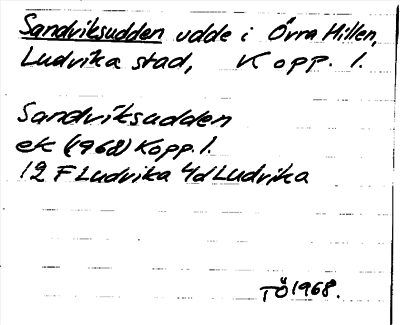 Sandviksudden udde i Övra Hillen,
Ludvika stad, Kopp. l.
Sandviksudden
ek (1968) Kopp. l.
12 F Ludvika 4d Ludvika
TÖ 1968.